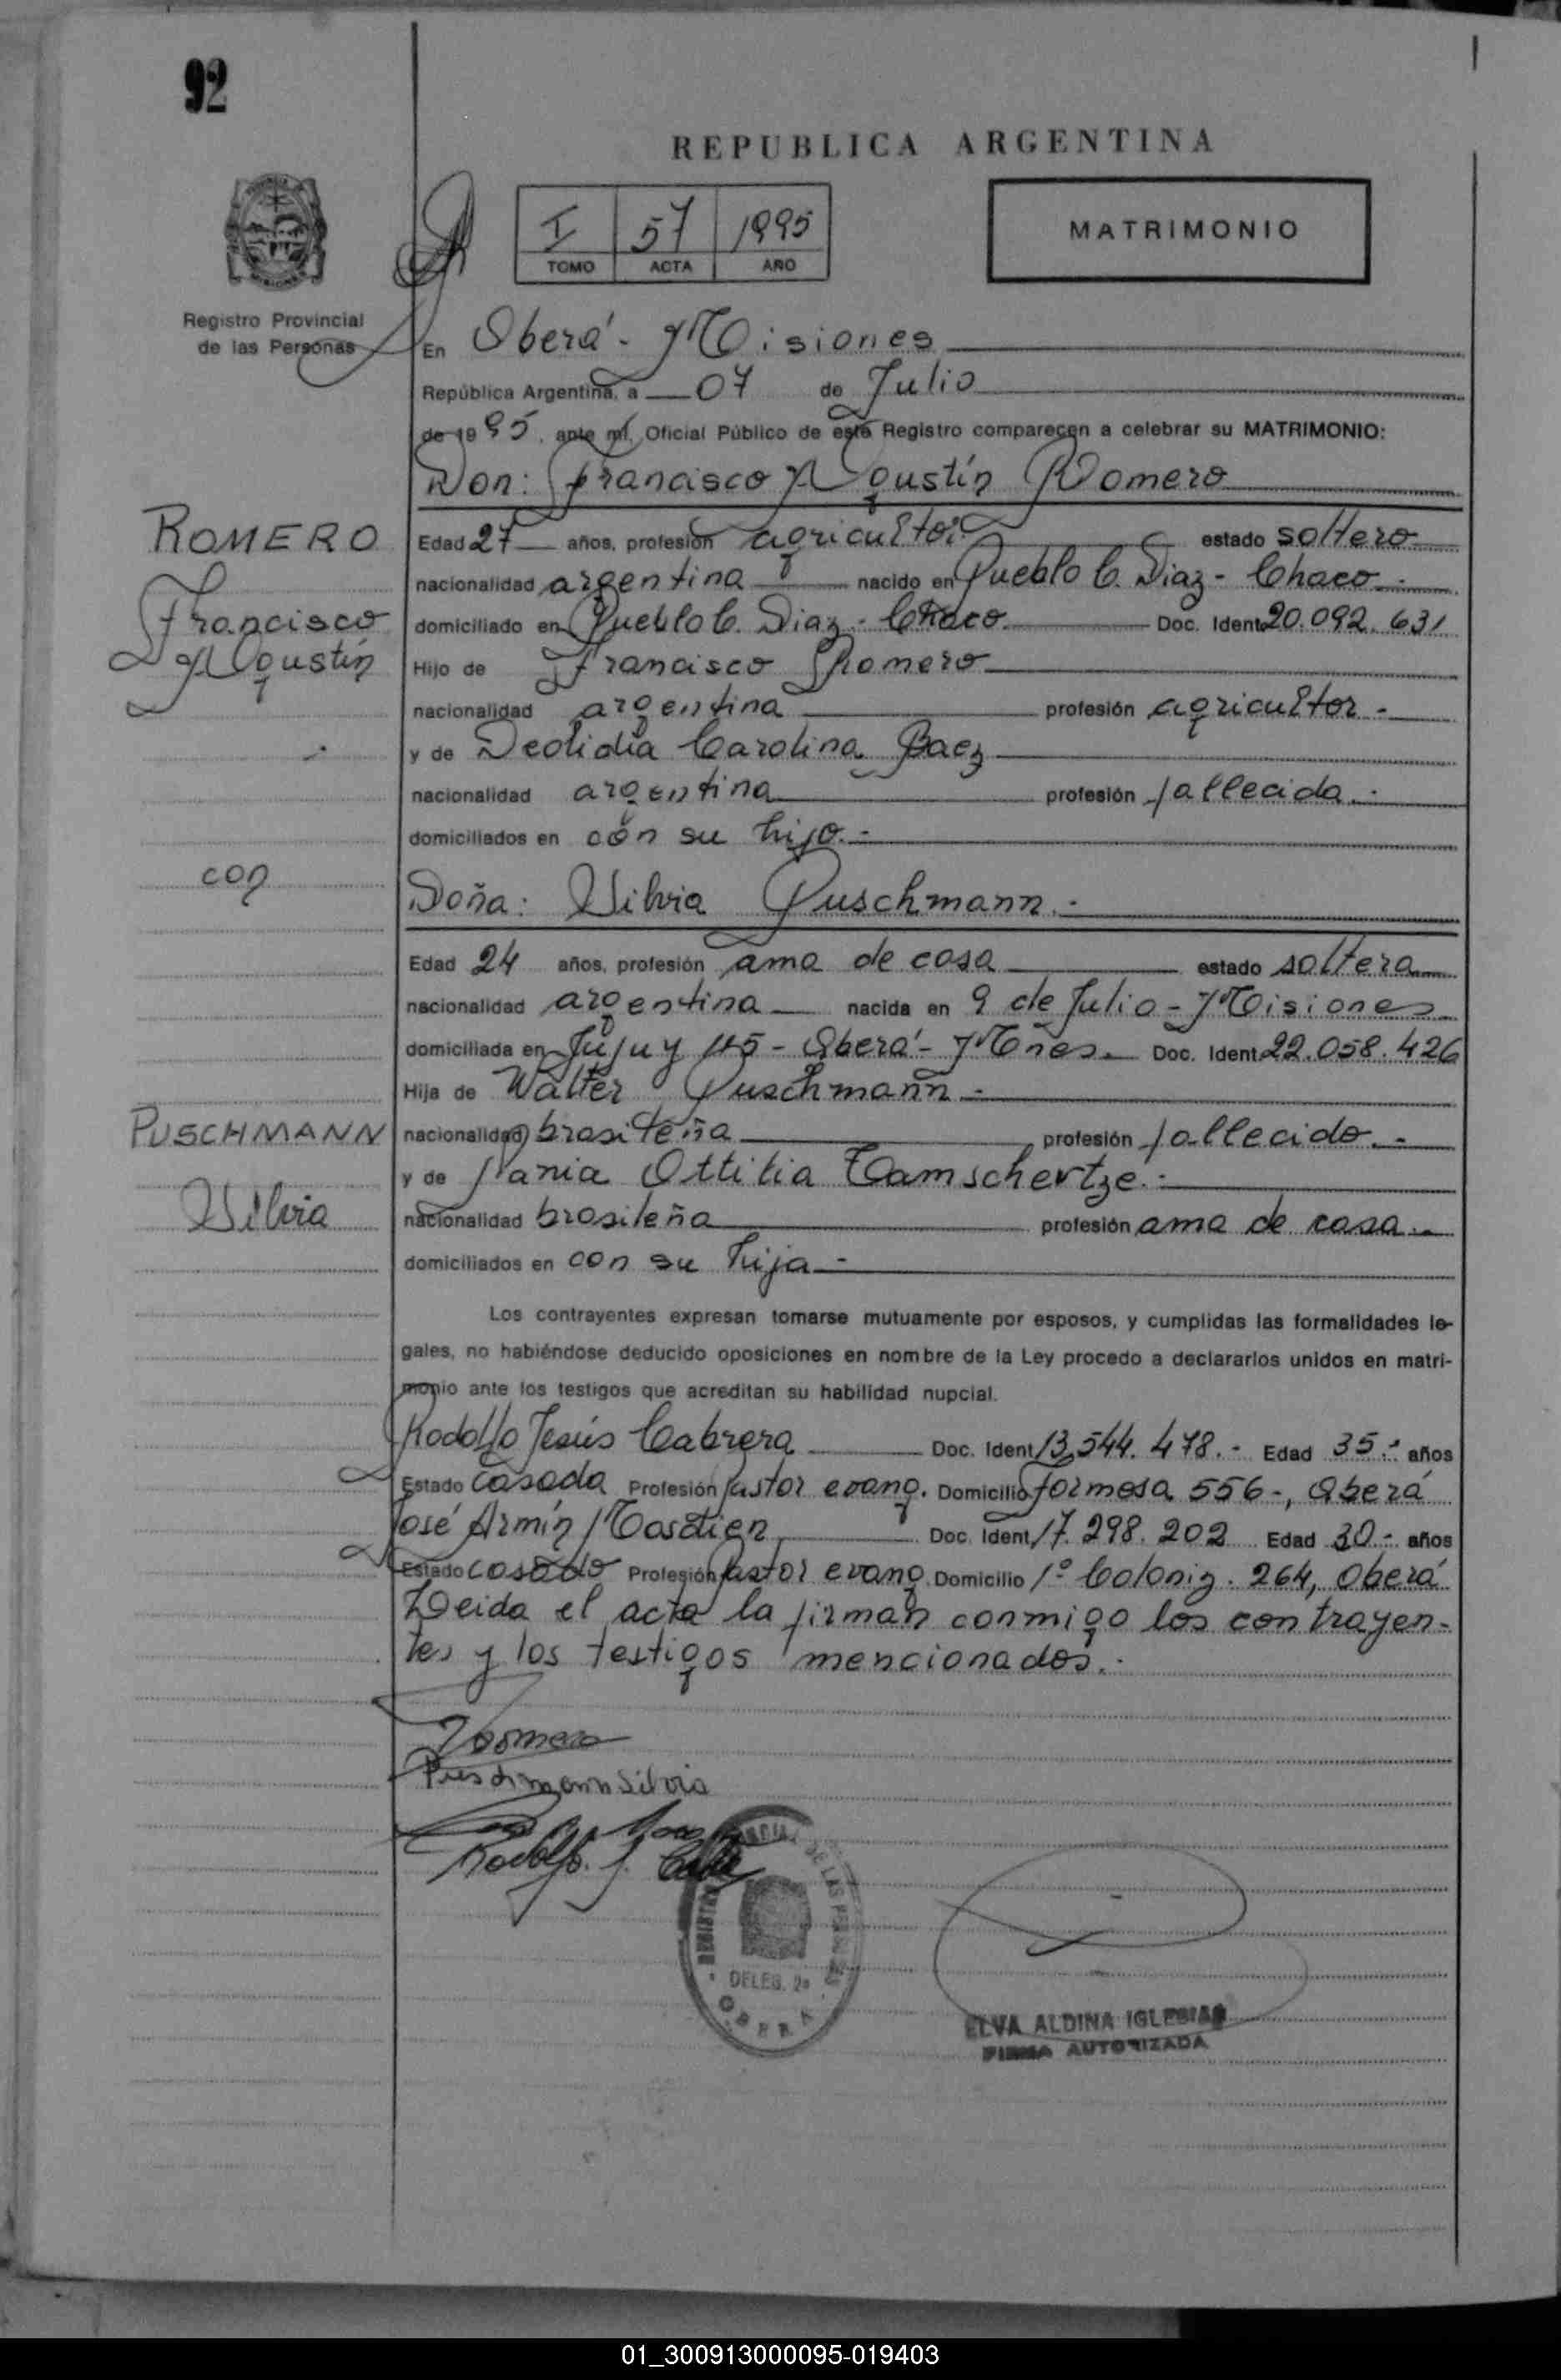 92
REPUBLICA ARGENTINA
I 57 1995
TOMO ACTA AÑO
MATRIMONIO
Registro Provincial
de las Personas
En Oberá - Misiones
República Argentina, a 07 de Julio
de 1995, ante mí, Oficial Público de este Registro comparecen a celebrar su MATRIMONIO:
Don: Francisco Agustín Romero
ROMERO
Francisco
Agustín
Edad 27 años, profesión agricultor estado soltero
nacionalidad argentina nacido en Pueblo C. Diaz - Chaco.-
domiciliado en Pueblo C. Diaz - Chaco. Doc. Ident. 20.092.631
Hijo de Francisco Romero
nacionalidad argentina profesión agricultor -
y de Deolidia Carolina Baez
nacionalidad argentina profesión fallecida.-
domiciliados en con su hijo.-
con
Doña: Silvia Puschmann.-
Edad 24 años, profesión ama de casa estado soltera
nacionalidad argentina nacida en 9 de Julio - Misiones
domiciliada en Jujuy 115 - Oberá - Mñes. Doc. Ident. 22.058.426
Hija de Walter Puschmann -
PUSCHMANN
Silvia
nacionalidad brasileña profesión fallecido.-
y de Ottilia Tamschertze.-
nacionalidad brasileña profesión ama de casa.-
domiciliados en con su hija.-
Los contrayentes expresan tomarse mutuamente por esposos, y cumplidas las formalidades le-
gales, no habiéndose deducido oposiciones en nombre de la Ley procedo a declararlos unidos en matri-
monio ante los testigos que acreditan su habilidad nupcial.
Rodolfo Jesús Cabrera Doc. Ident. 13.544.478.- Edad 35.- años
Estado casado Profesión pastor evang. Domicilio formosa 556 -, Oberá
José Armín Doc. Ident. 17.298.202 Edad 30.- años
Estado casado Profesión pastor evang. Domicilio 1º Coloniz. 264, Oberá
Leida el acta la firman conmigo los contrayen-
tes y los testigos mencionados.-
Romero
Puschmann Silvia
Rodolfo J.
REGISTRO DE LAS PERSONAS
DELEG. 2ª
OBERA
ELVA ALDINA IGLESIAS
FIRMA AUTORIZADA
01_300913000095-019403